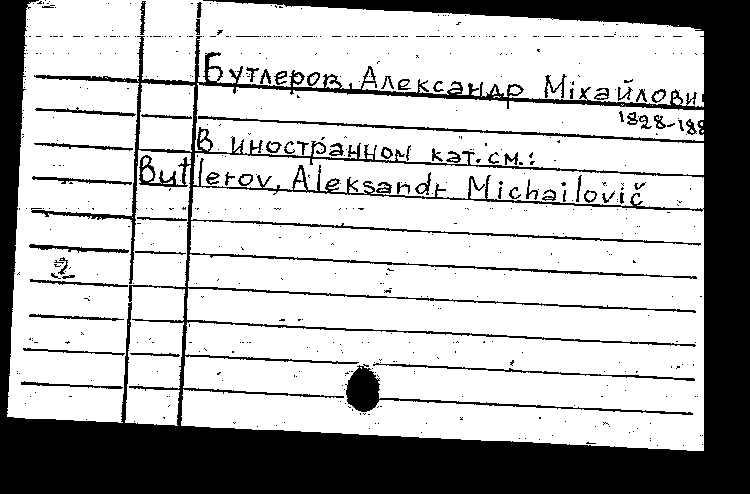 Бутлеров, Александр Міхайлови
1828-188
В иностранном кат. см.:
Butlerov, Aleksandr Michailovič
2